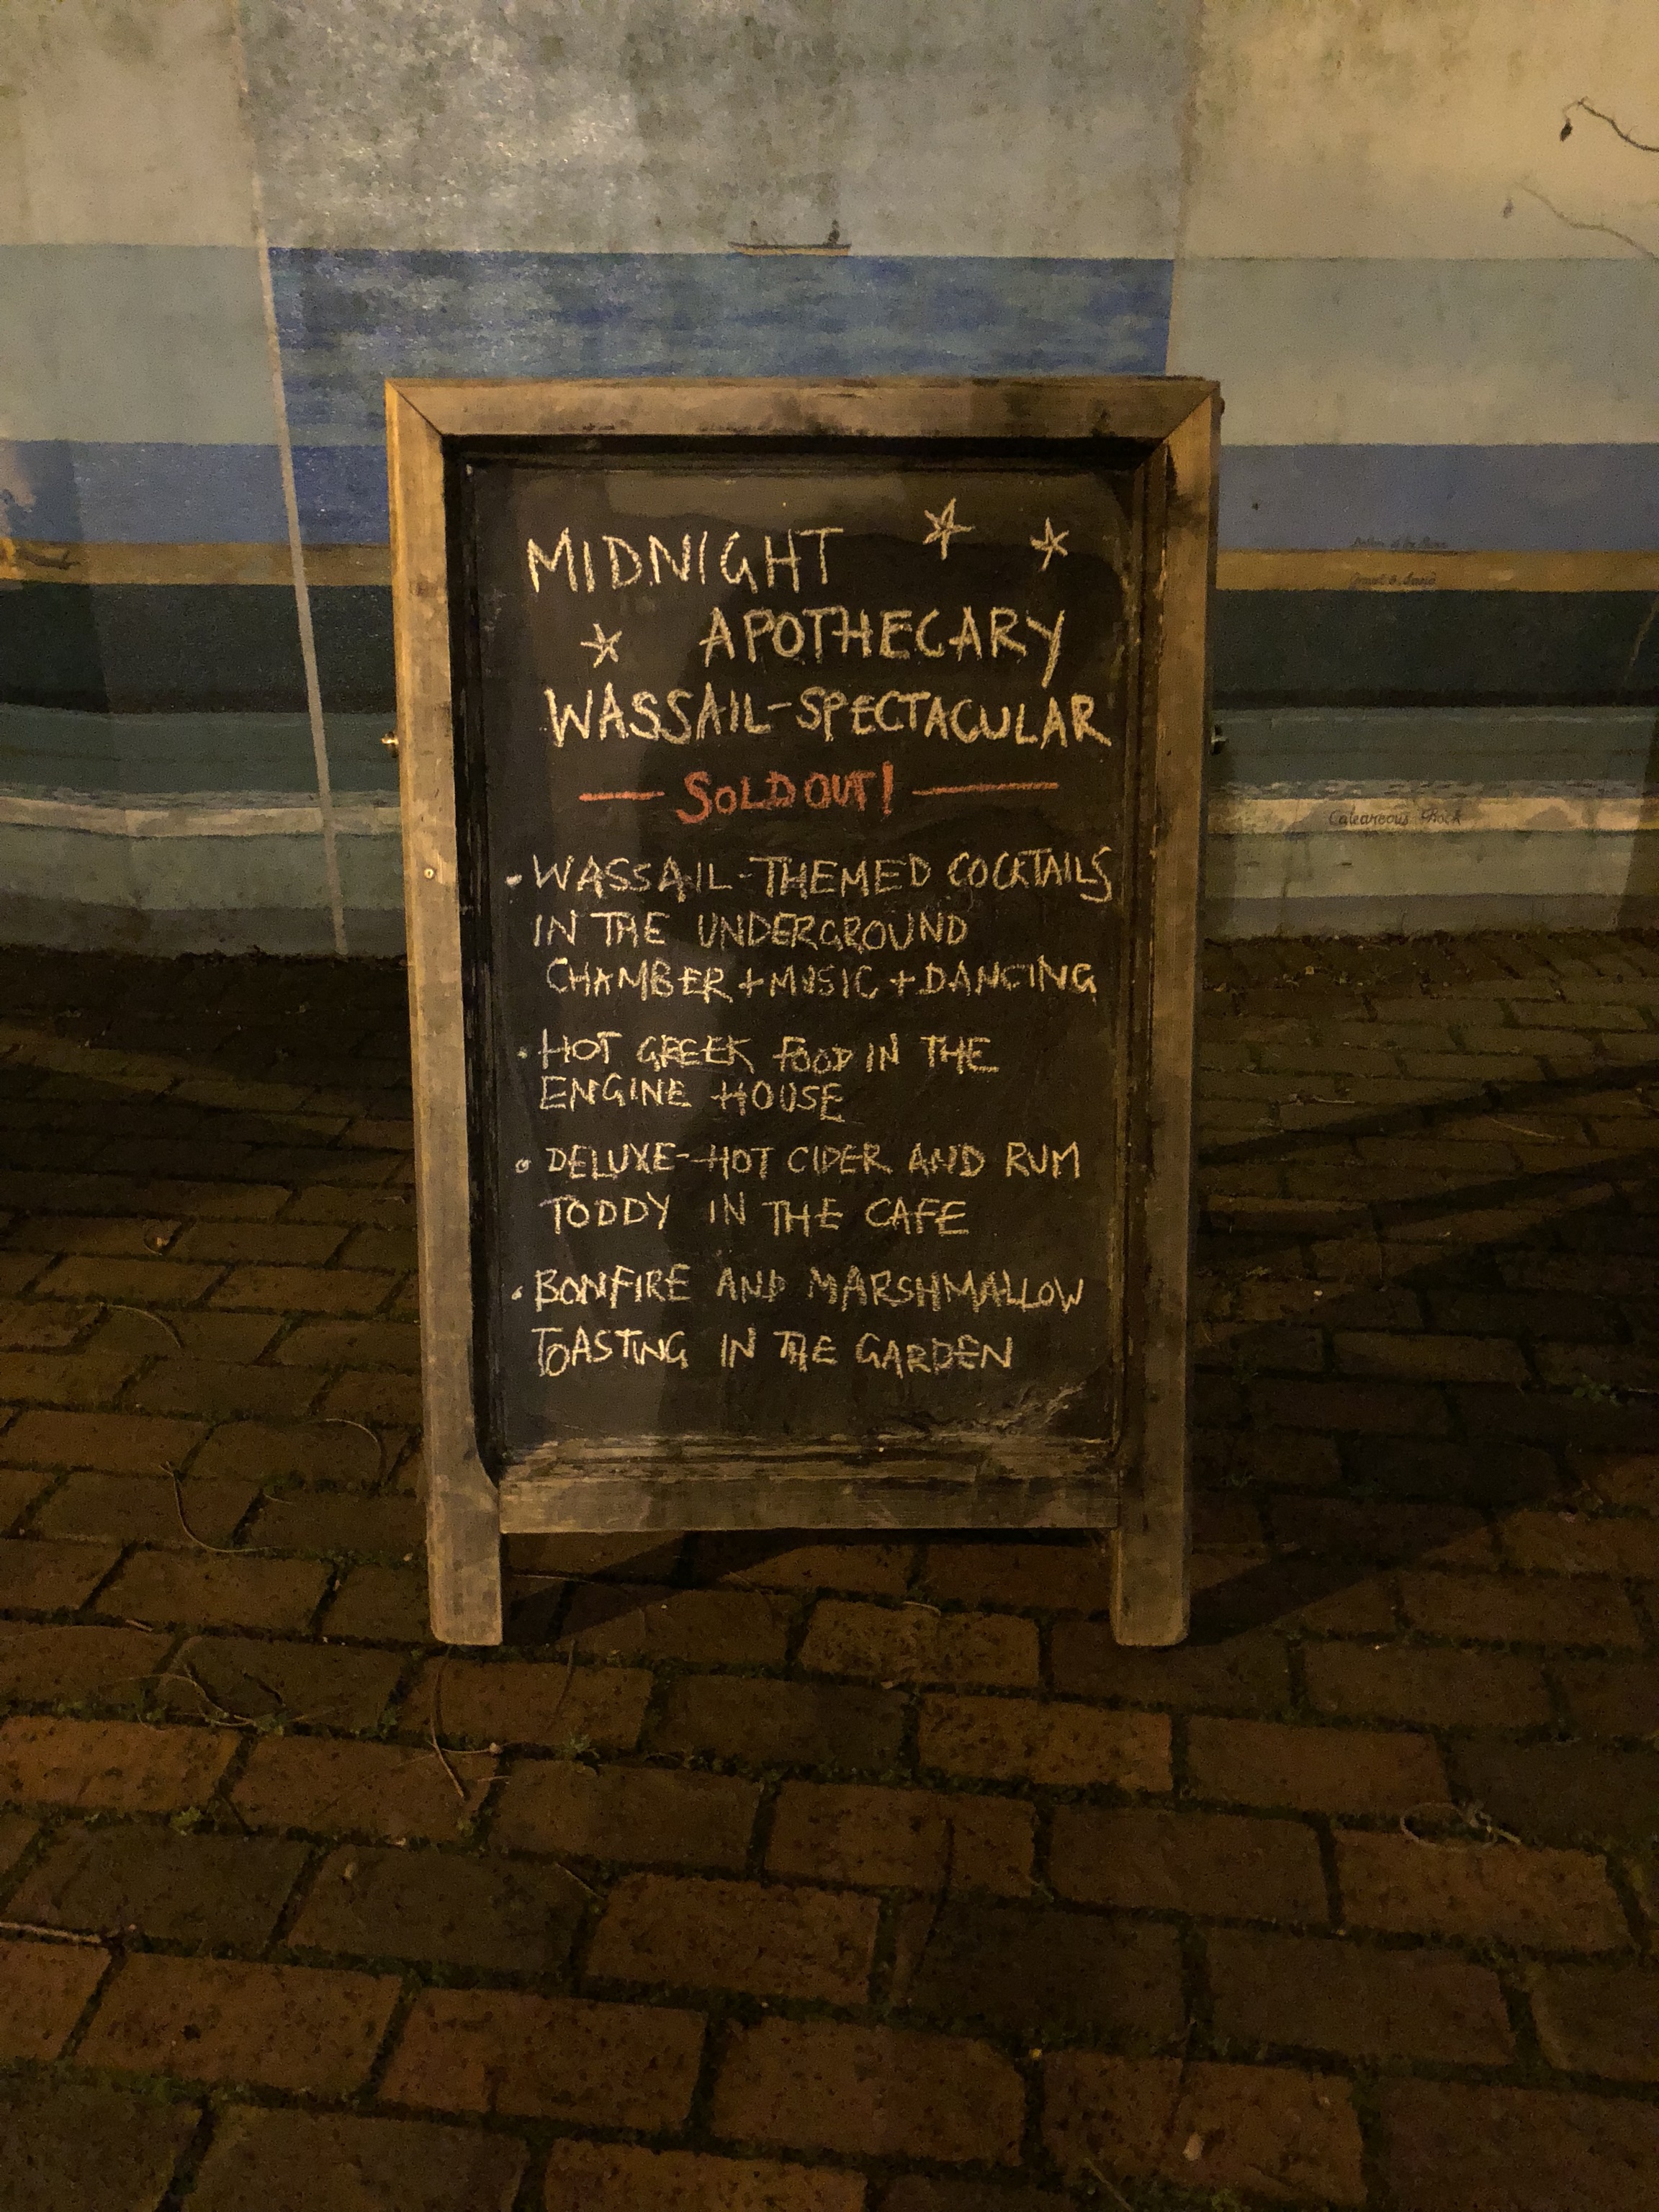 MIDNIGHT
APOTHECARY
WASSAIL-SPECTACULAR
— SOLD OUT! —
• WASSAIL-THEMED COCKTAILS
IN THE UNDERGROUND
CHAMBER + MUSIC + DANCING
• HOT GREEK FOOD IN THE
ENGINE HOUSE
• DELUXE-HOT CIDER AND RUM
TODDY IN THE CAFE
• BONFIRE AND MARSHMALLOW
TOASTING IN THE GARDEN
Bottom of the River
Gravel & Sand
Calcareous Rock